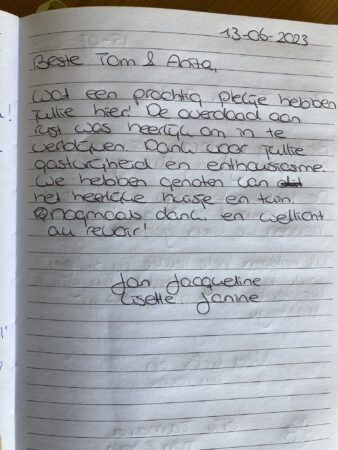 13-06-2023
Beste Tom & Anita,
Wat een prachtig plekje hebben
jullie hier! De overdaad aan
rust was heerlijk om in te
verblijven. Dank voor jullie
gastvrijheid en enthousiasme.
We hebben genoten van
het heerlijke huisje en tuin.
nogmaals dank en wellicht
au revoir!
Jan Jacqueline
Lisette Janine